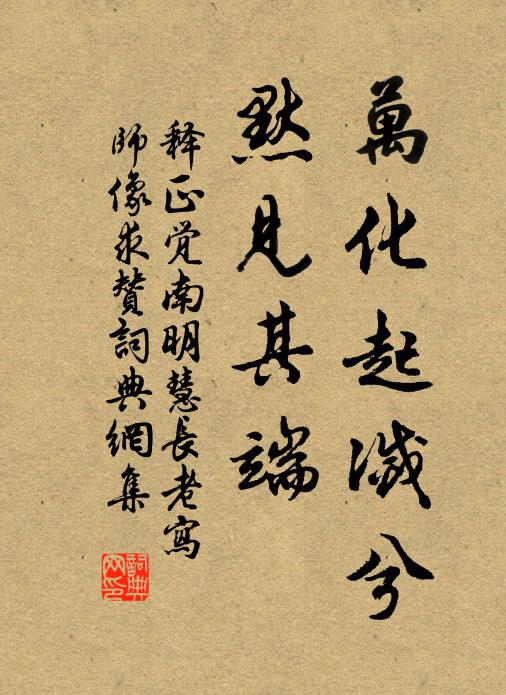 萬化起滅兮
默見其端
释正觉南明慧長老寫
師像求贊詞典網集
詞典
网印